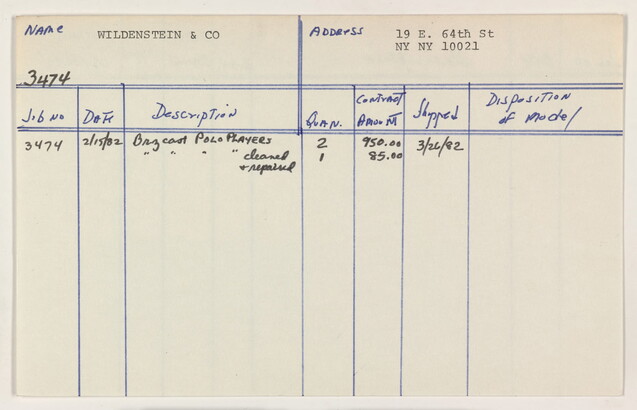 NAME WILDENSTEIN & CO ADDRESS 19 E. 64th St
NY NY 10021
3474
Job No DATE Description QUAN. CONTRACT AMOUNT Shipped Disposition of Model
3474 2/15/82 Brz cast POLO PLAYERS 2 950.00 3/26/82
" " " " cleaned 1 85.00
+ repaired